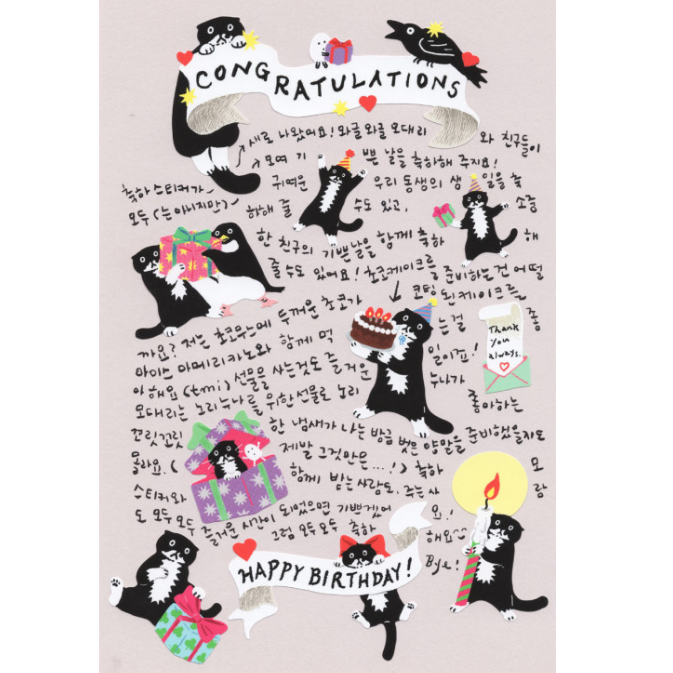 CONGRATULATIONS
새로 나왔어요! 와글와글 모대리 와 친구들이
모여 기 쁜 날을 축하해 주지요!
축하스티커가~ 귀여운 우리 동생의 생 일을 축
모두(는 아니지만)~ 하해 줄 수도 있고, 소중
한 친구의 기쁜날을 함께 축하 해
줄 수도 있어요! 초코케이크를 준비하는건 어떨
까요? 저는 초코무스에 두꺼운 초코가 코팅 된 케이크를
아이스 아메리카노와 함께 먹 는걸 좋
아해요(tmi) 선물을 사는것도 즐거운 일이죠!
모대리는 노리누나를 위한선물로 노리 누나가 좋아하는
꼬릿꼬릿 한 냄새가 나는 방금 벗은 양말을 준비했을지도
몰라요. ( 제발 그것만은...! ) 축하
스티커와 함께 받는사람도, 주는사 람
도 모두모두 즐거운 시간이 되었으면 기쁘겠어 요!
그럼 모두모두 축하 해요^^
Bye!
Thank
you
always.
HAPPY BIRTHDAY!